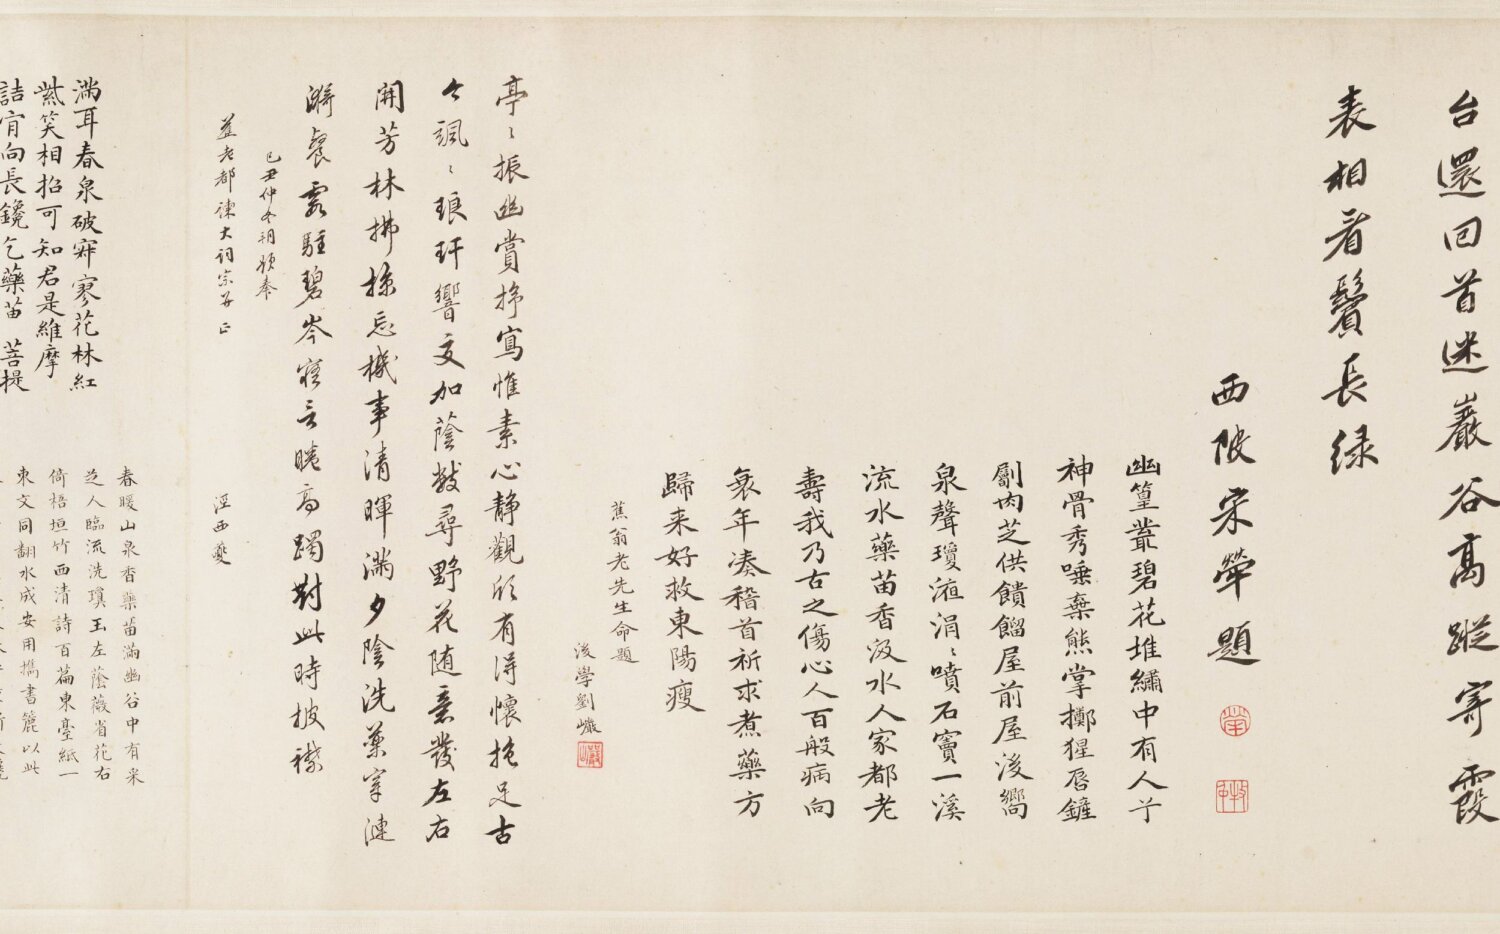 台還回首迷巖谷高蹤寄霞
表相看鬢長绿
西陂宋犖題
幽篁叢碧花堆繡中有人兮
神骨秀唾棄熊掌擲猩唇鏟
劚肉芝供饋餾屋前屋後嚮
泉聲瓊液涓〻噴石竇一溪
流水藥苗香汲水人家都老
壽我乃古之傷心人百般病向
衰年凑稽首祈求煮藥方
歸来好救東陽瘦
蕉翁老先生命題
後學劉巘
亭〻振幽賞抒寫惟素心静觀欣有得懷抱足古
今颯〻琅玕響交加蔭數尋野花随意發左右
開芳林拂搽忘機事清暉滿夕陰洗藥穿漣
漪餐霞駐碧岑寤言睠高躅對此時披襟
己丑仲冬朔題奉
益老都諫大詞宗 正
滿耳春泉破寂寥花林紅
紫笑相招可知君是維摩
詰肯向長鑱乞藥苗 菩提
春暖山泉香藥苗滿幽谷中有采
芝人臨流洗瓊玉左蔭薇省花右
倚梧垣竹西清詩百篇東臺紙一
束文同翻水成安用攜書簏以此